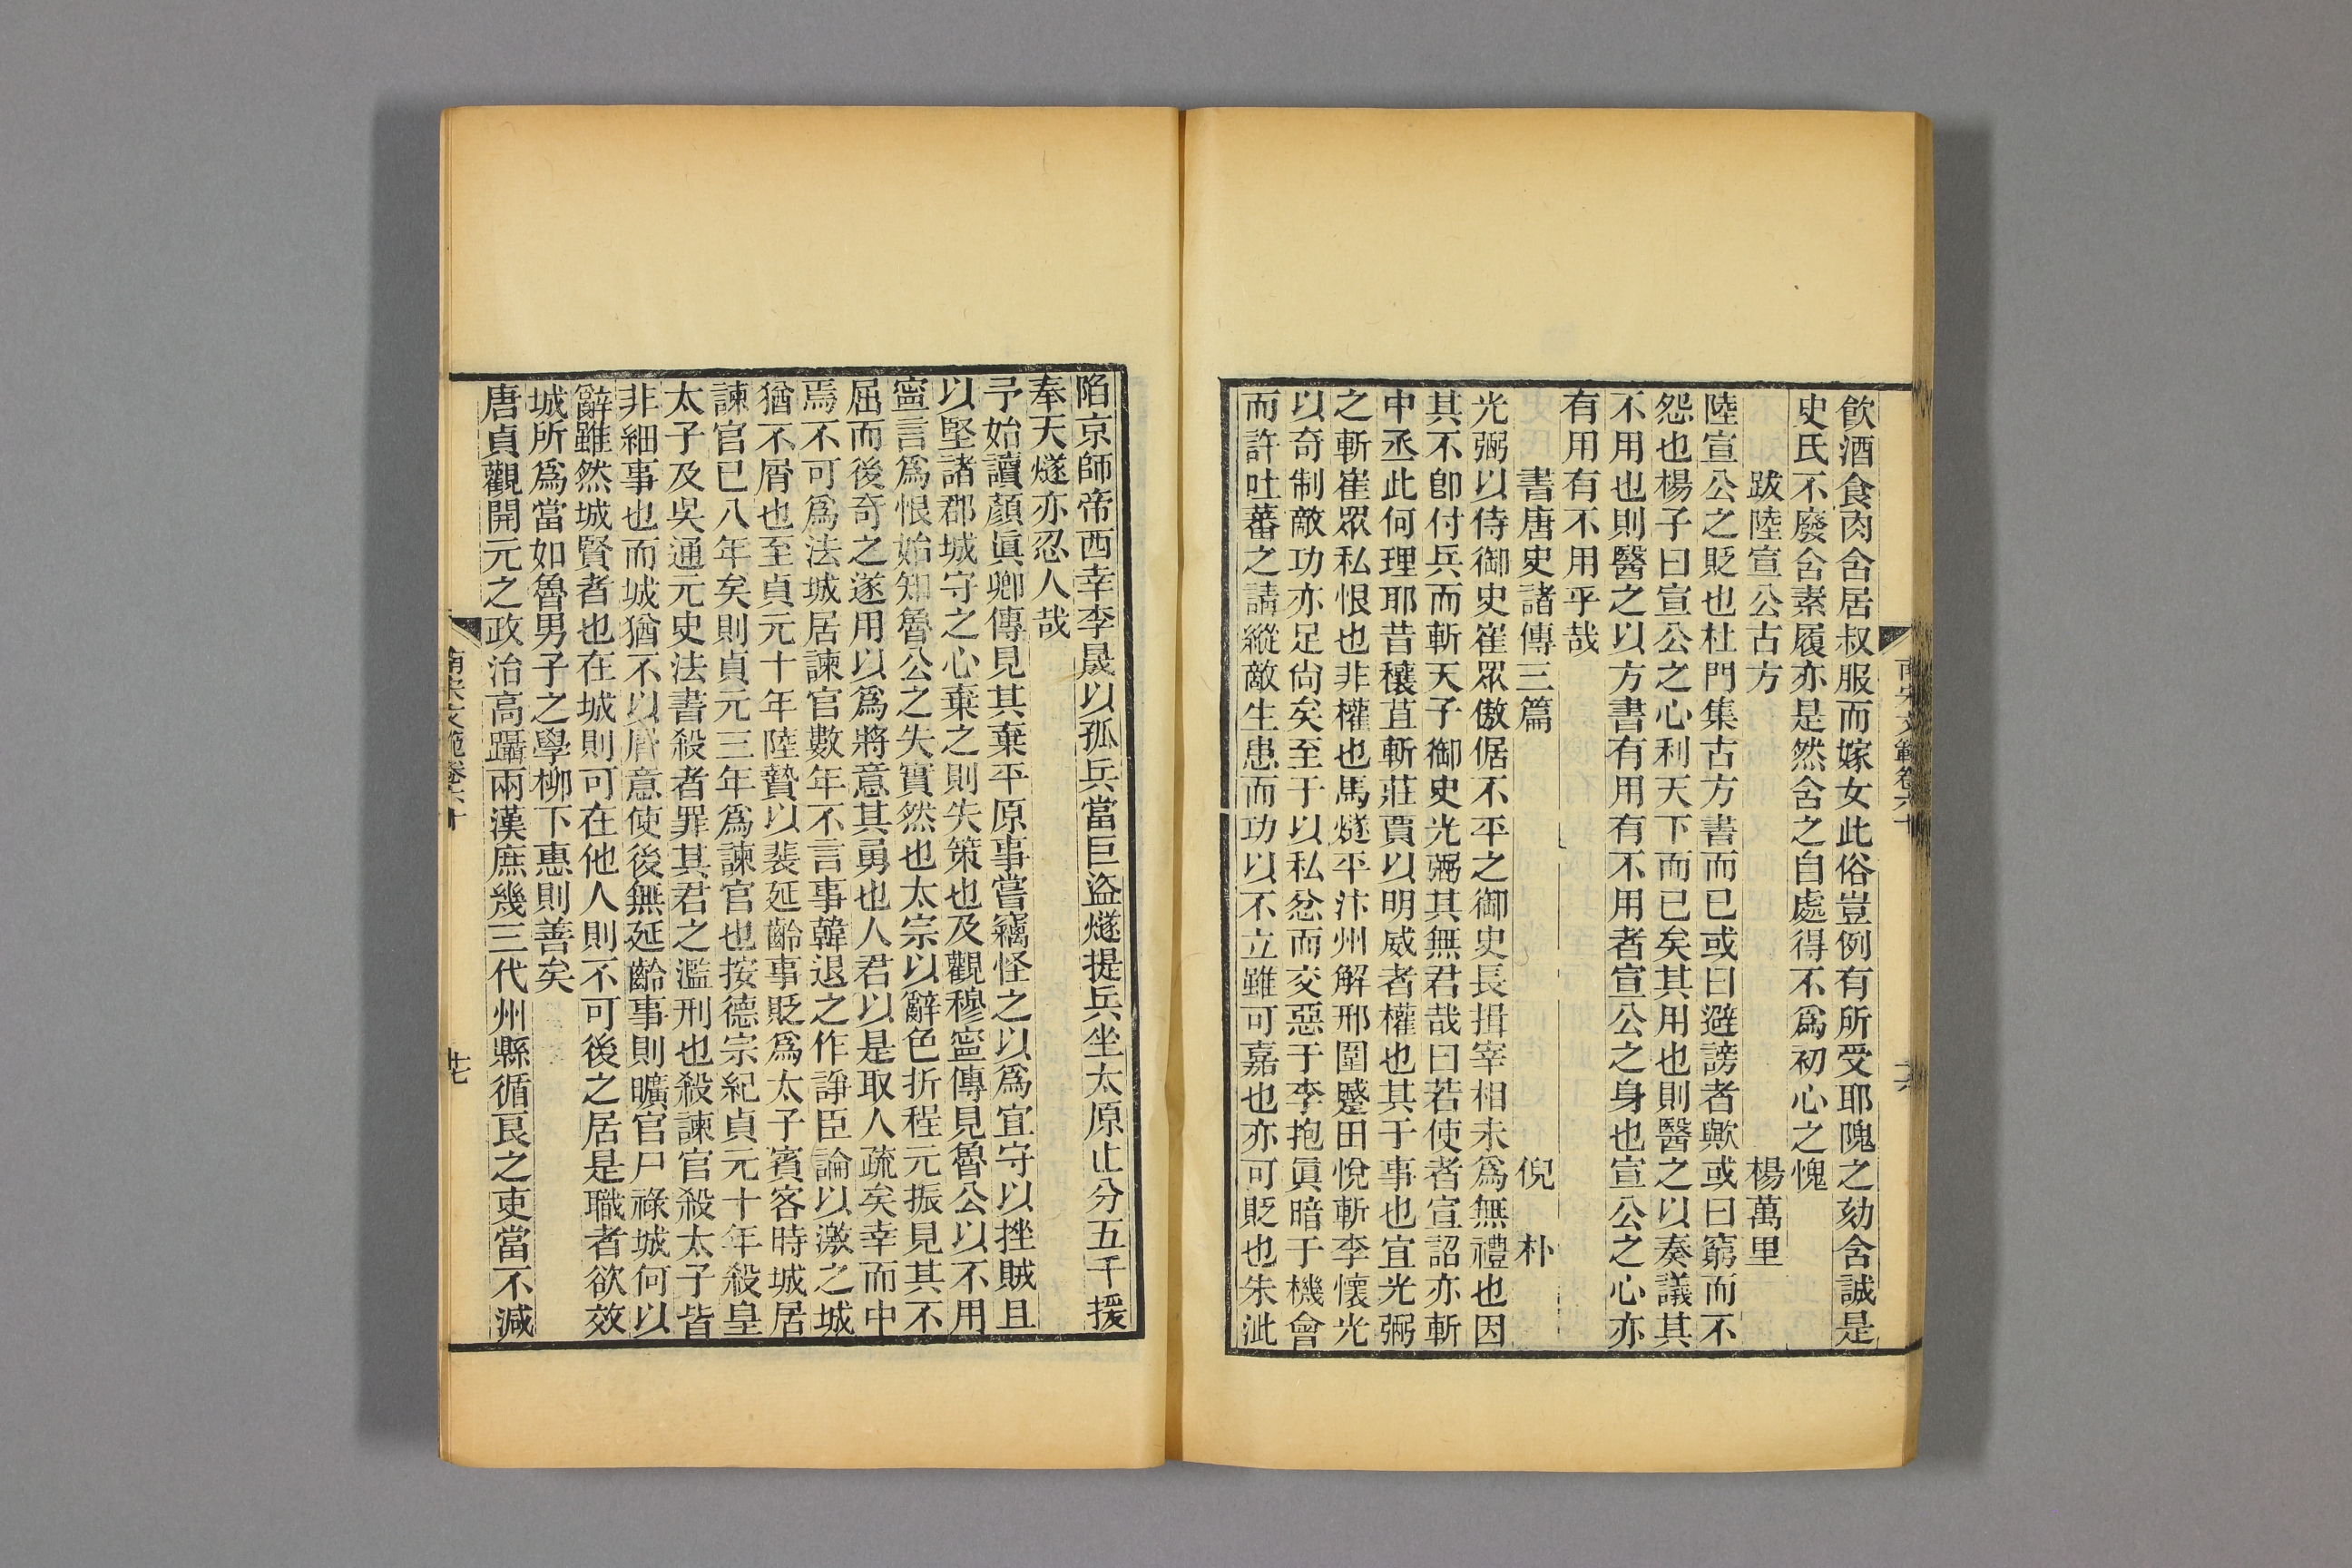 飲酒食肉含居叔服而嫁女此俗豈例有所受耶隗之劾含誠是
史氏不廢含素履亦是然含之自處得不爲初心之愧
跋陸宣公古方 楊萬里
陸宣公之貶也杜門集古方書而已或曰避謗者歟或曰窮而不
怨也楊子曰宣公之心利天下而已矣其用也則醫之以奏議其
不用也則醫之以方書有用有不用者宣公之身也宣公之心亦
有用有不用乎哉
書唐史諸傳三篇 倪朴
光弼以侍御史崔眾傲倨不平之御史長揖宰相未爲無禮也因
其不卽付兵而斬天子御史光弼其無君哉曰若使者宣詔亦斬
中丞此何理耶昔穰苴斬莊賈以明威者權也其于事也宜光弼
之斬崔眾私恨也非權也馬燧平汴州解邢圍蹙田悅斬李懷光
以奇制敵功亦足尙矣至于以私忿而交惡于李抱眞暗于機會
而許吐蕃之請縱敵生患而功以不立雖可嘉也亦可貶也朱泚
南宋文範卷六十
十六
陷京師帝西幸李晟以孤兵當巨盜燧提兵坐太原止分五千援
奉天燧亦忍人哉
予始讀顏眞卿傳見其棄平原事嘗竊怪之以爲宜守以挫賊且
以堅諸郡城守之心棄之則失策也及觀穆寧傳見魯公以不用
寧言爲恨始知魯公之失實然也太宗以辭色折程元振見其不
屈而後奇之遂用以爲將意其勇也人君以是取人疏矣幸而中
焉不可爲法城居諫官數年不言事韓退之作諍臣論以激之城
猶不屑也至貞元十年陸贄以裴延齡事貶爲太子賓客時城居
諫官已八年矣則貞元三年爲諫官也按德宗紀貞元十年殺皇
太子及吳通元史法書殺者罪其君之濫刑也殺諫官殺太子皆
非細事也而城猶不以屑意使後無延齡事則曠官尸祿城何以
辭雖然城賢者也在城則可在他人則不可後之居是職者欲效
城所爲當如魯男子之學柳下惠則善矣
唐貞觀開元之政治高躡兩漢庶幾三代州縣循良之吏當不減
南宋文範卷六十
十七